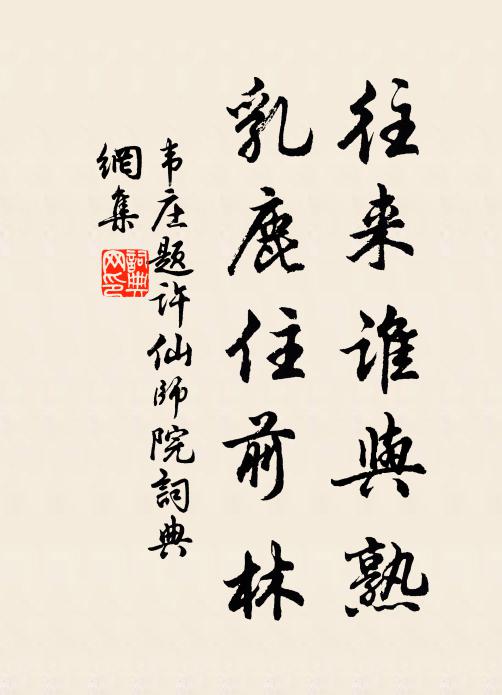 往来谁與熟
乳鹿住前林
韦庄题许仙師院詞典
網集
詞典
网印